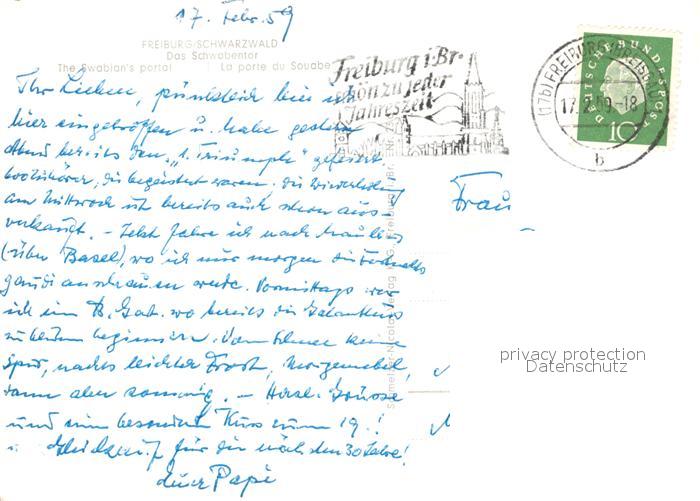 17. Febr. 59
FREIBURG/SCHWARZWALD
Das Schwabentor
The Swabian's portal La porte du Souabe
Freiburg i. Br.
schön zu jeder
Jahreszeit
(17b) FREIBURG
17.2.59-18
b
DEUTSCHE BUNDESPOST
10
Ihr Lieben, pünktlich bin ich
hier eingetroffen u. habe gestern
Abend bereits den „1. Triumph" gefeiert
die begeistert waren. die Wiederholung
am Mittwoch ist bereits auch schon aus-
verkauft. – Jetzt fahre ich nach
(über Basel), wo ich mir morgen die
gaudi anschauen werde. Vormittags war
ich im B. Gart. wo bereits die Galanthus
zu blühen beginnen. Vom Föhn keine
Spur, nachts leichter Frost, Morgennebel,
dann aber sonnig. – Herzl. Grüsse
und einen besonderen Kuss zum 19.!
u. Glückauf für die nächsten 30 Jahre!
Euer Papi
Frau
privacy protection
Datenschutz